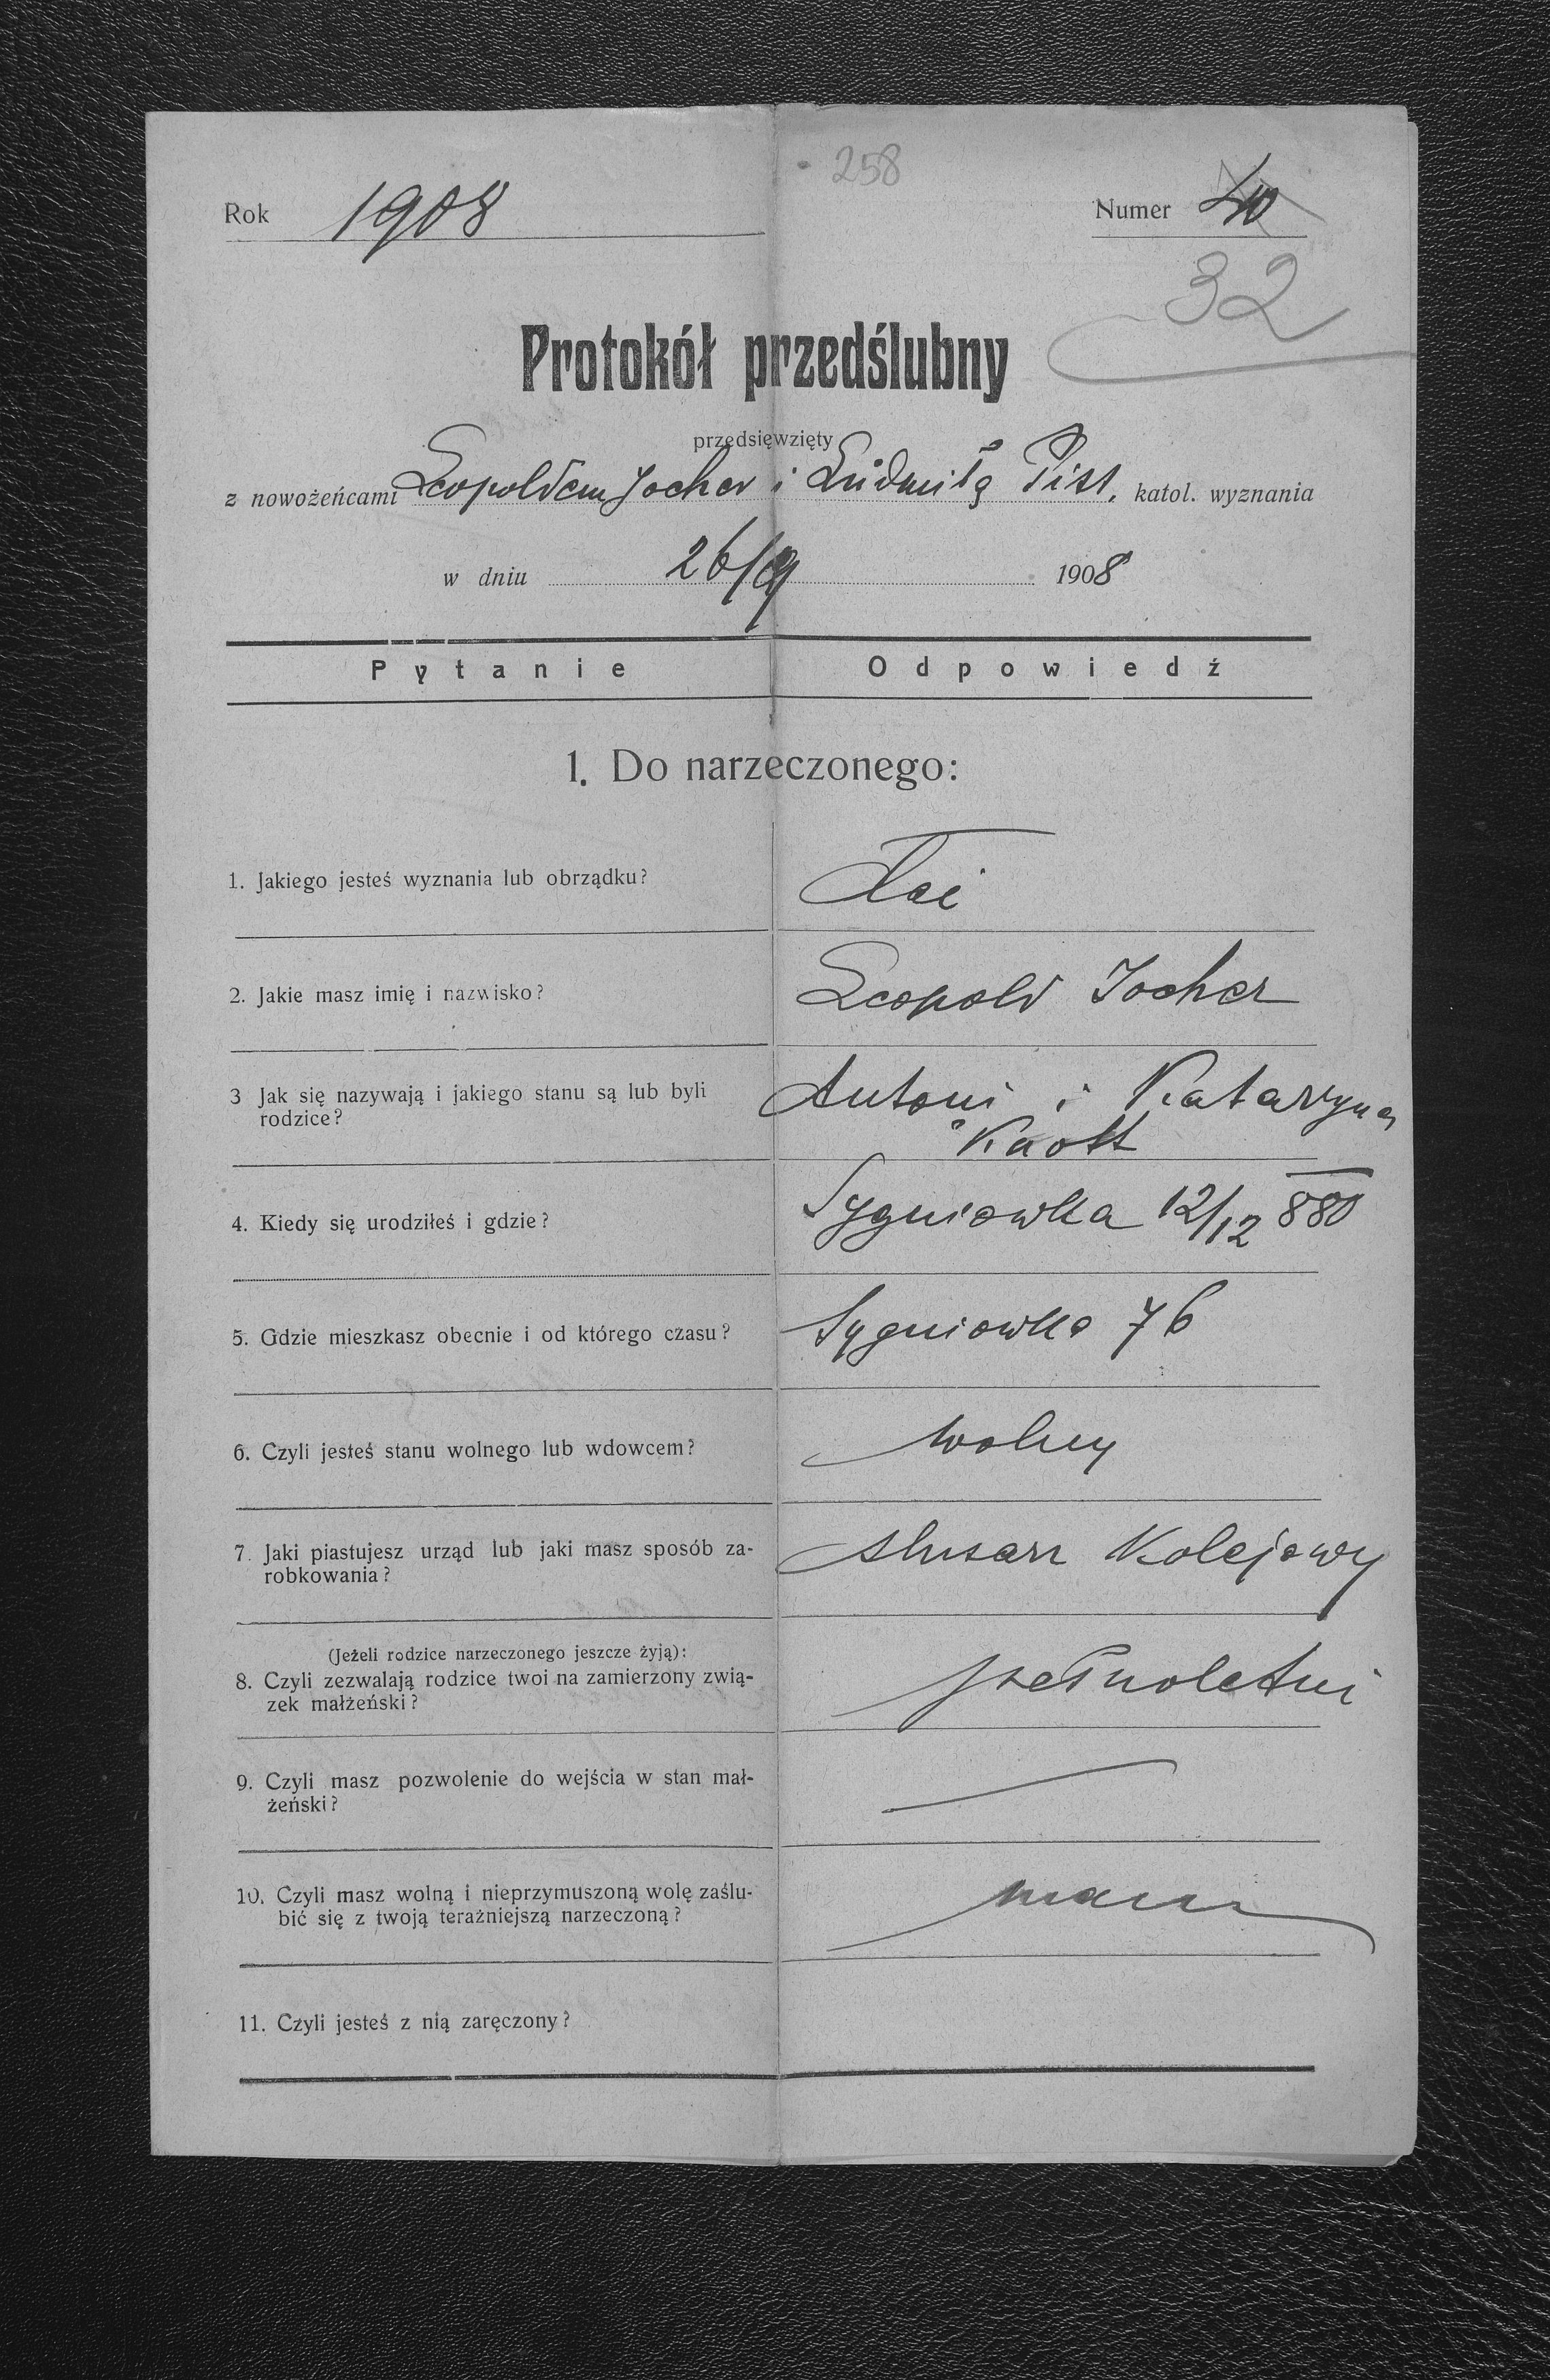 258
Rok 1908 Numer 40
32
Protokół przedślubny
przedsięwzięty
z nowożeńcami Leopoldem Jocher i Ludmiłą Pist, katol. wyznania
w dniu 26/9 1908
Pytanie Odpowiedź
1. Do narzeczonego:
1. Jakiego jesteś wyznania lub obrządku? łać
2. Jakie masz imię i nazwisko? Leopold Jocher
3 Jak się nazywają i jakiego stanu są lub byli Antoni i Katarzyna
rodzice?
4. Kiedy się urodziłeś i gdzie? Sygniowka 12/12 880
5. Gdzie mieszkasz obecnie i od którego czasu? Sygniowka 76
6. Czyli jesteś stanu wolnego lub wdowcem? wolny
7. Jaki piastujesz urząd lub jaki masz sposób za- slusarz kolejowy
robkowania?
(Jeżeli rodzice narzeczonego jeszcze żyją):
8. Czyli zezwalają rodzice twoi na zamierzony zwią- pełnoletni
zek małżeński?
9. Czyli masz pozwolenie do wejścia w stan mał-
żeński?
10. Czyli masz wolną i nieprzymuszoną wolę zaślu- mam
bić się z twoją teraźniejszą narzeczoną?
11. Czyli jesteś z nią zaręczony?